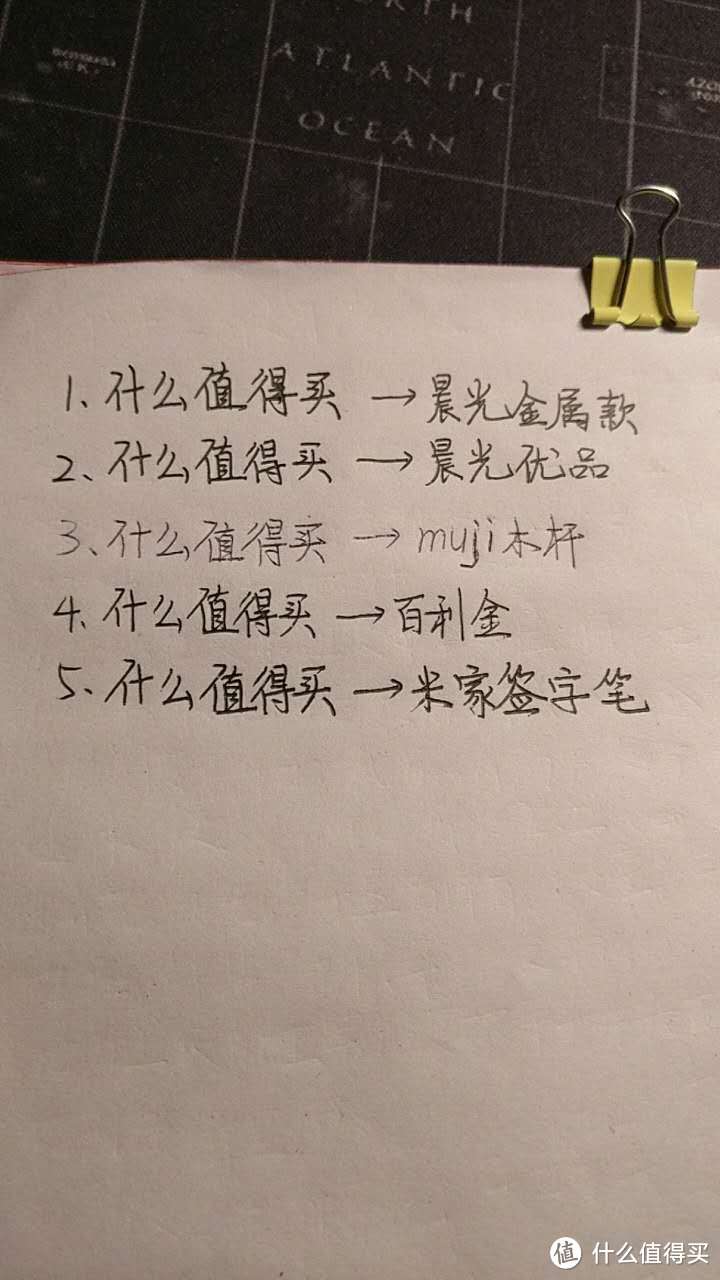 ATLANTIC
OCEAN
1、什么值得买 →晨光金属款
2、什么值得买 →晨光优品
3、什么值得买 →muji木杆
4、什么值得买 →百利金
5、什么值得买 →米家签字笔
值 什么值得买